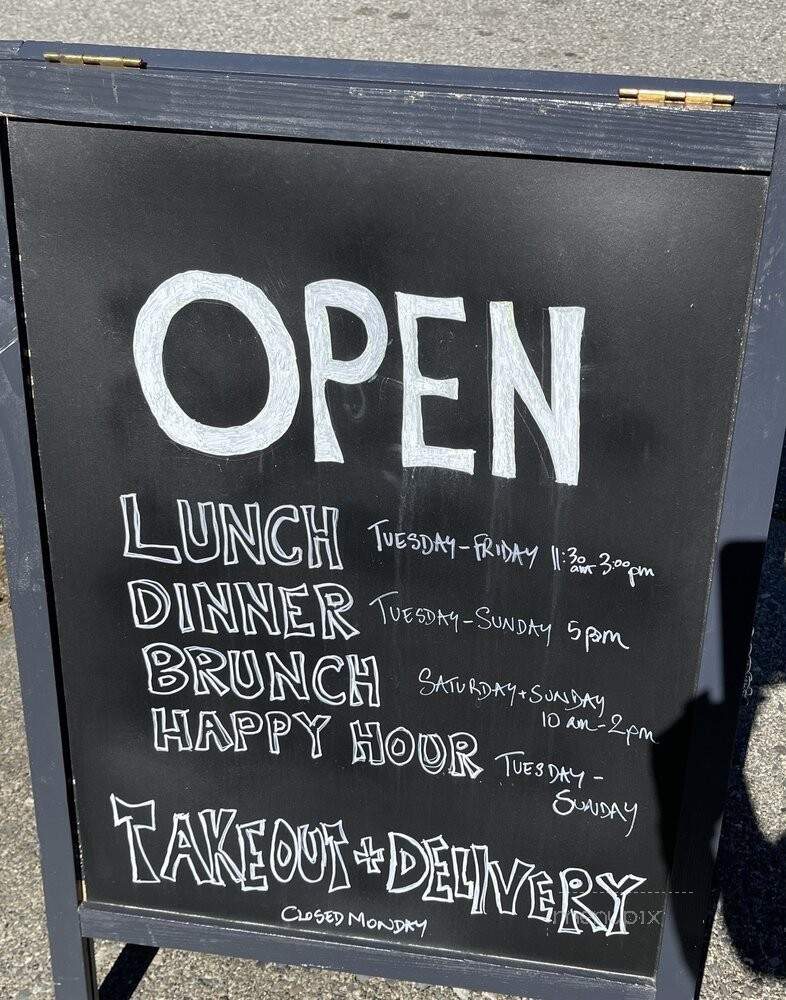 OPEN
LUNCH TUESDAY-FRIDAY 11:30 am 3:00pm
DINNER TUESDAY-SUNDAY 5pm
BRUNCH SATURDAY+SUNDAY
10 am-2pm
HAPPY HOUR TUESDAY-
SUNDAY
TAKEOUT+DELIVERY
CLOSED MONDAY
menupix